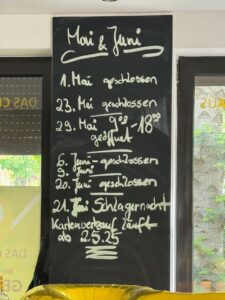 Mai & Juni
1. Mai geschlossen
23. Mai geschlossen
29. Mai 9⁰⁰ - 18⁰⁰
geöffnet
6. Juni - geschlossen
9. Juni
20. Juni geschlossen
21. Juni Schlagernacht
Kartenverkauf läuft
ab 2.5.25
DAS C